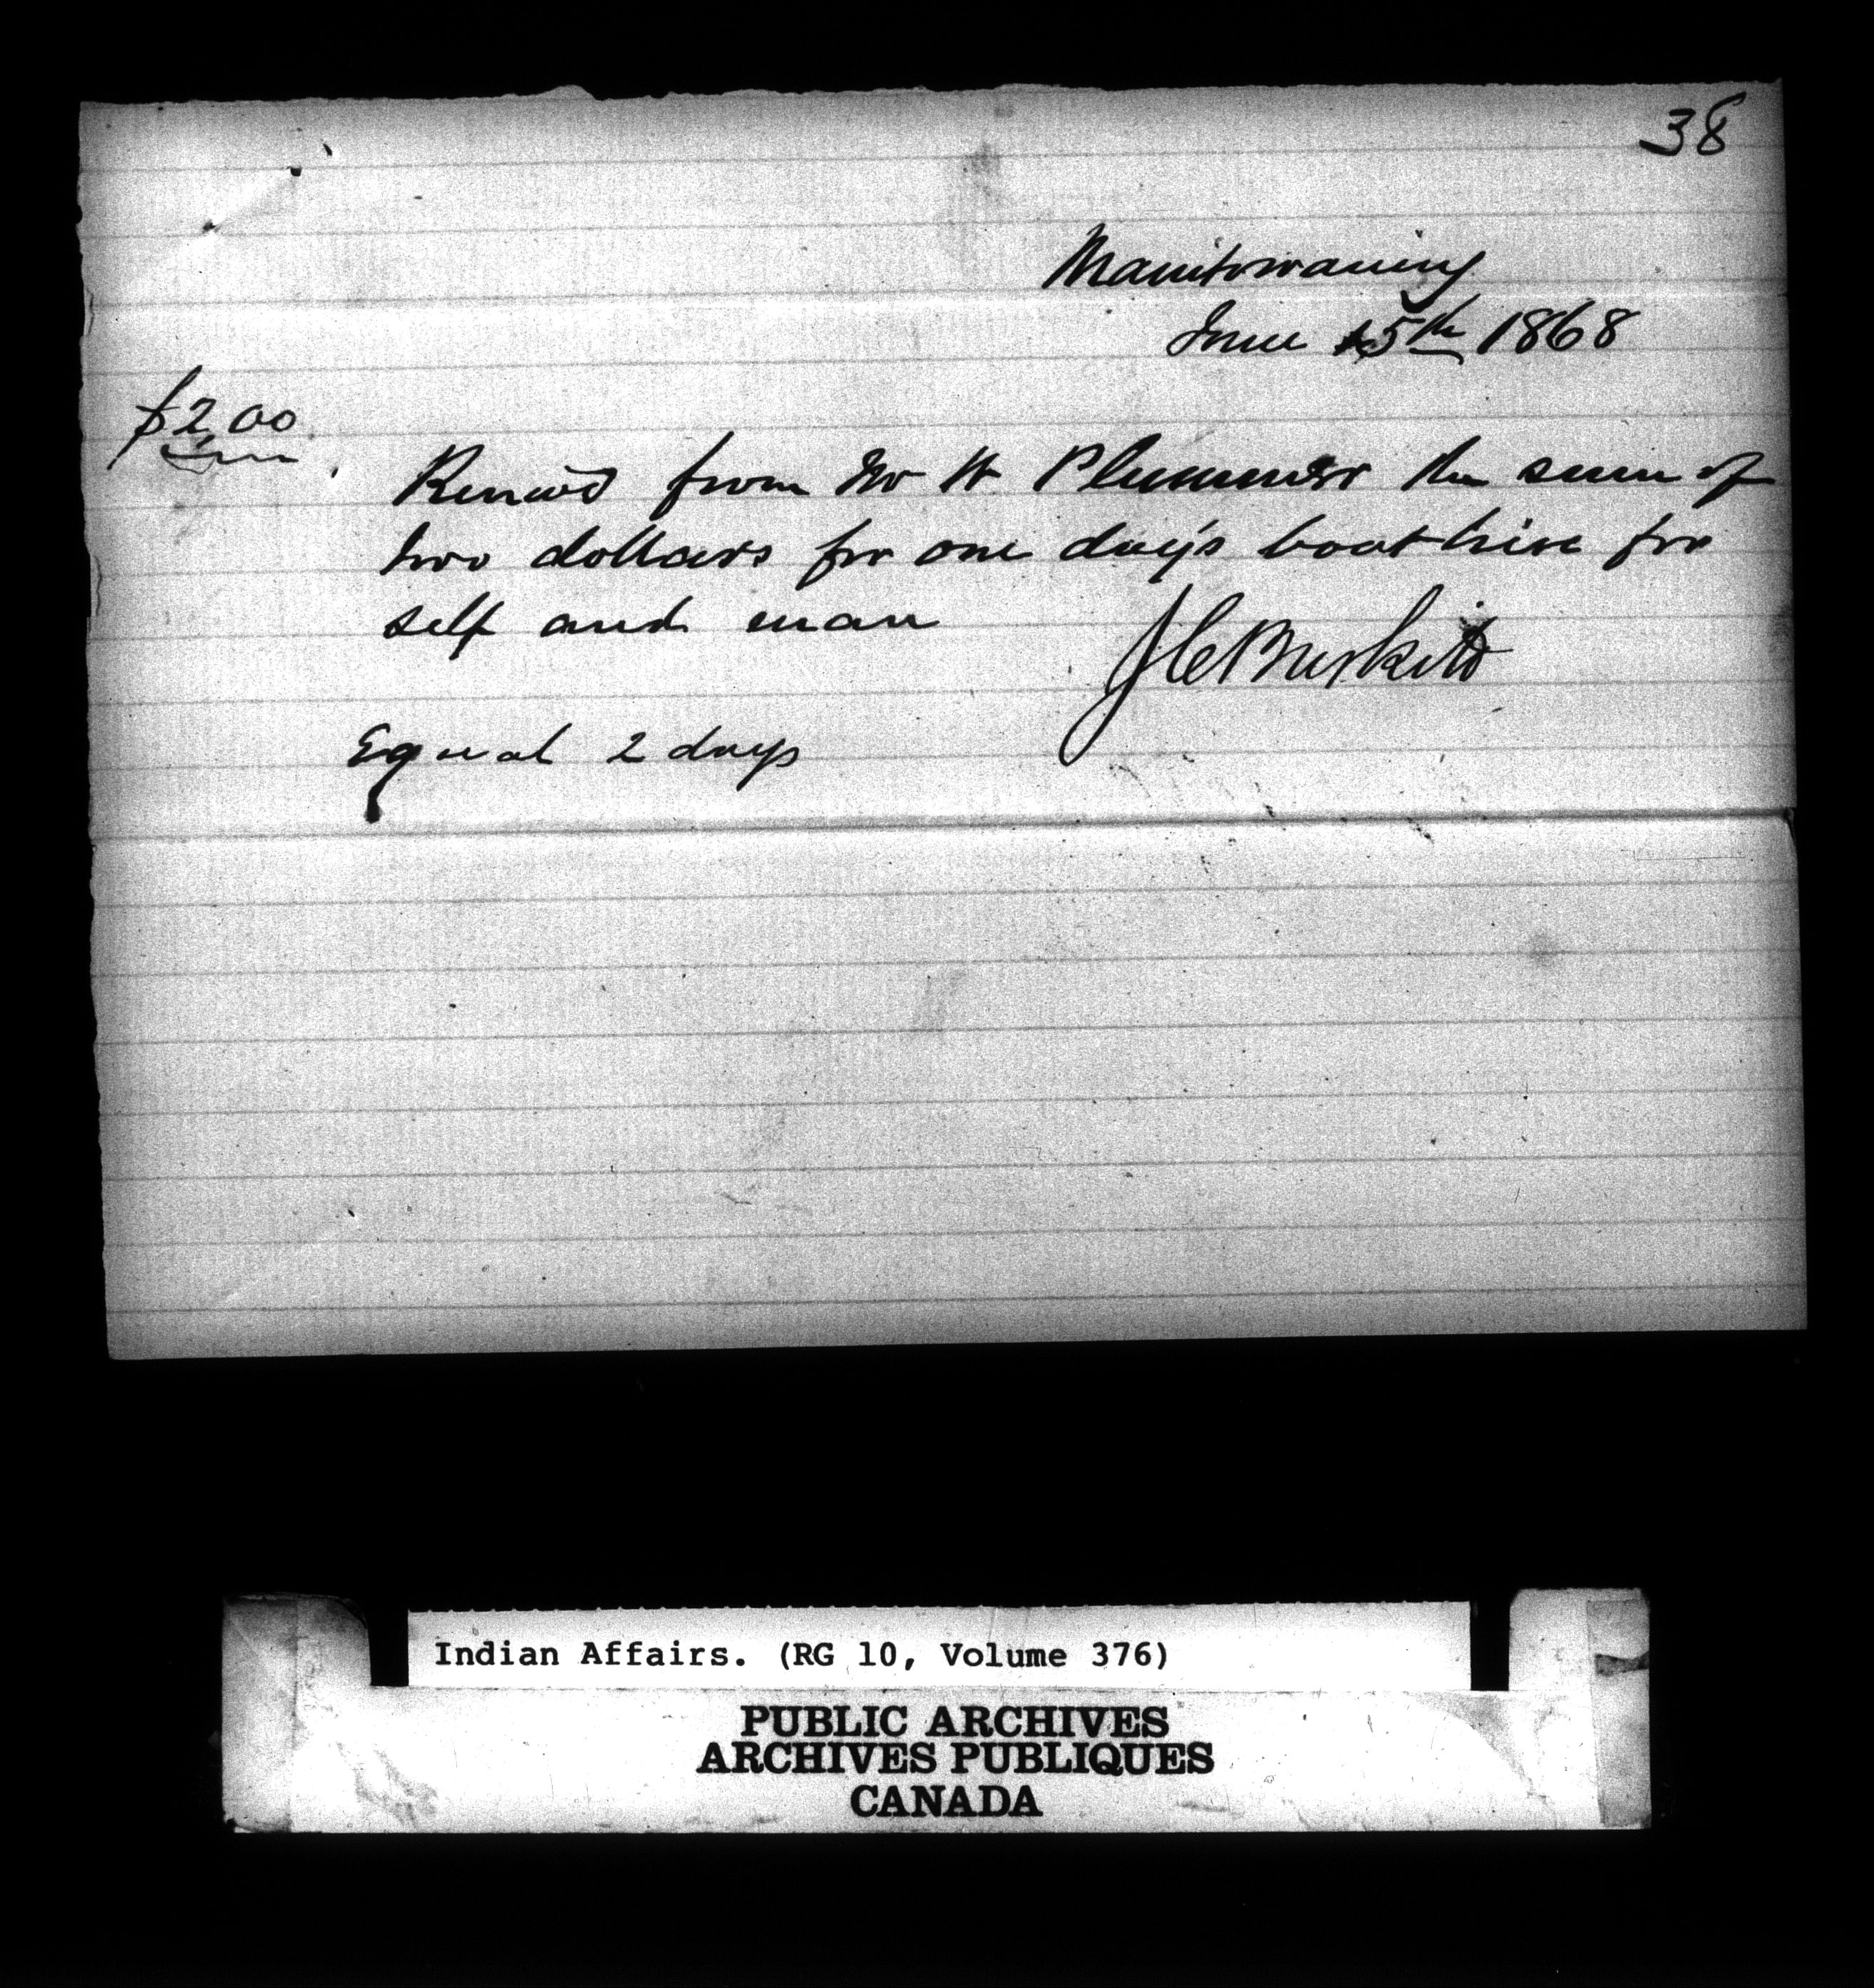 38
Manitowaning
June 15th 1868
$2.00
Received from Mr W Plummer the sum of
two dollars for one day's boat hire for
self and man
Equal 2 days
Indian Affairs. (RG 10, Volume 376)
PUBLIC ARCHIVES
ARCHIVES PUBLIQUES
CANADA